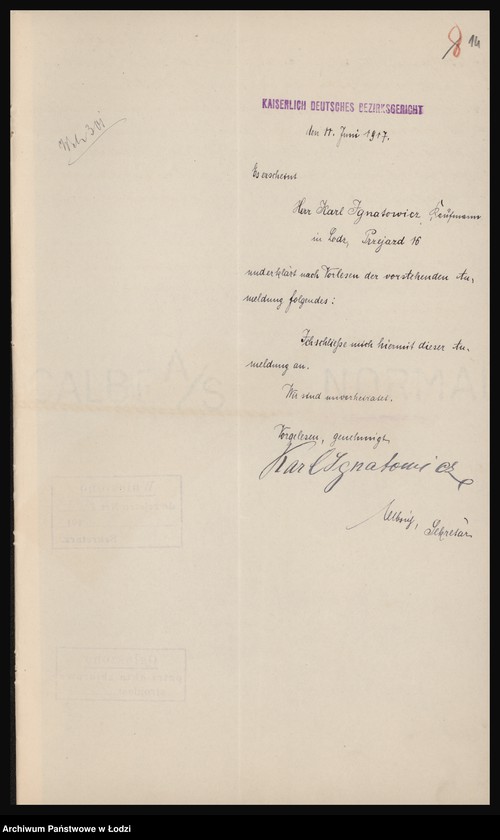 8 14
KAISERLICH DEUTSCHES BEZIRKSGERICHT
den 11. Juni 1917.
Es erscheint
Herr Karl Ignatowicz, Kaufmann
in Lodz, Przejazd 16
und erklärt nach Vorlesen der vorstehenden An-
meldung folgendes:
Ich schließe mich hiermit dieser An-
meldung an.
Wir sind unverheiratet.
Vorgelesen, genehmigt
Karl Ignatowicz
Sekretär
Archiwum Państwowe w Łodzi